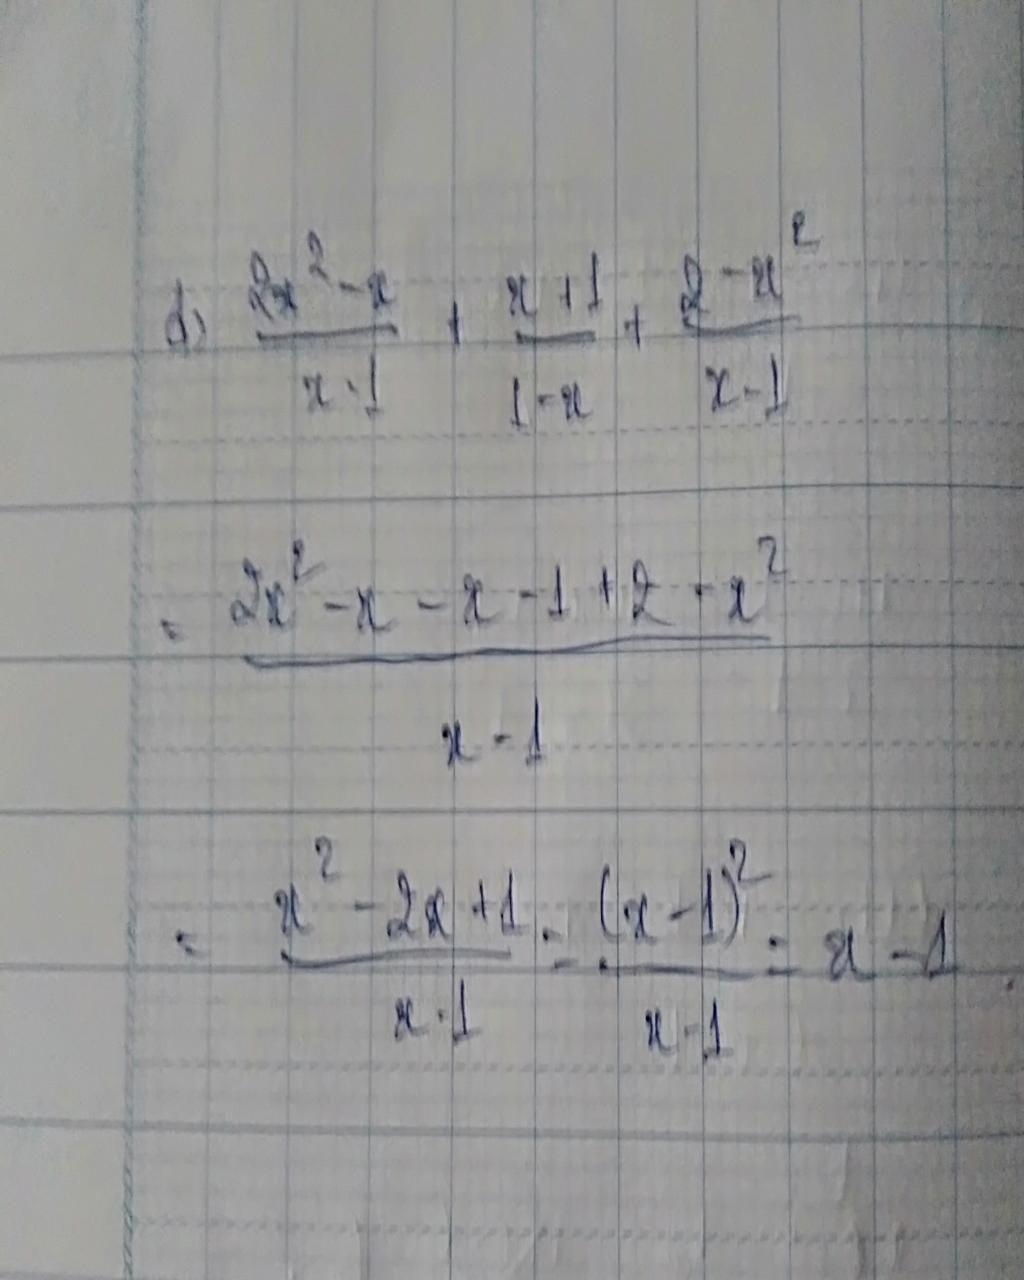 d) (2x² - x)/(x - 1) + (x + 1)/(1 - x) + (2 - x²)/(x - 1)
= (2x² - x - x - 1 + 2 - x²)/(x - 1)
= (x² - 2x + 1)/(x - 1) = (x - 1)²/(x - 1) = x - 1